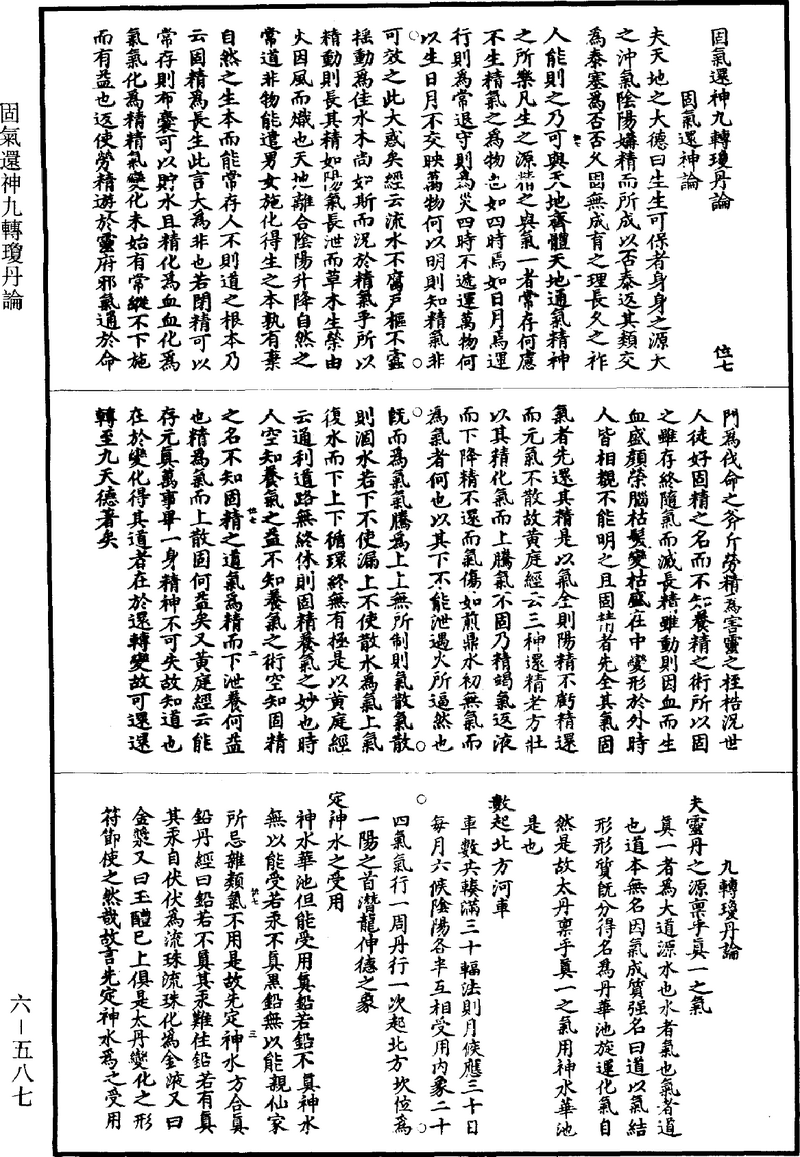 固氣還神九轉瓊丹論
位七
固氣還神論
夫天地之大德曰生生可保者身身之源大
之沖氣陰陽媾精而所成以否泰返其類交
為泰塞為否否久固無成育之理長久之祚
人能則之乃可與天地齊體天地通氣精神
之所樂凡生之源精之與氣一者常存何慮
不生精氣之為物也如四時焉如日月焉運
行則為常退守則為災四時不遞運萬物何
以生日月不交映萬物何以明則知精氣非
可效之此大惑矣經云流水不腐戶樞不蠹
摇動為佳水木尚如斯而況於精氣乎所以
精動則長其精如陽氣長泄而草木生榮由
火因風而熾也天地離合陰陽升降自然之
常道非物能遣男女施化得生之本孰有棄
自然之生本而能常存人不則道之根本乃
云固精為長生此言大為非也若閉精可以
常存則布囊可以貯水且精化為血血化為
氣氣化為精精氣變化未始有常縱不下施
而有益也返使勞精遊於靈府邪氣通於命
門為伐命之斧斤勞精為害靈之桎梏況世
人徒好固精之名而不知養精之術所以固
之雖存終隨氣而滅長精雖動則因血而生
血盛顏榮腦枯髮變枯盛在中變形於外時
人皆相觀不能明之且固精者先全其氣固
氣者先還其精是以氣全則陽精不虧精還
而元氣不散故黃庭經云三神還精老方壯
以其精化氣而上騰氣不固乃精竭氣返液
而下降精不還而氣傷如煎鼎水初無氣而
為氣者何也以其下不能泄遇火所逼然也
既而為氣氣騰為上上無所制則氣散氣散
則涸水若下不使漏上不使散水為氣上氣
復水而下上下循環終無有極是以黃庭經
云通利道路無終休則固精養氣之妙也時
人空知養氣之益不知養氣之術空知固精
之名不知固精之道氣為精而下泄養何益
也精為氣而上散固何益矣又黃庭經云能
存元真萬事畢一身精神不可失故知道也
在於變化得其道者在於還轉變故可還還
轉至九天德著矣
九轉瓊丹論
夫靈丹之源稟乎真一之氣
真一者為大道源水也水者氣也氣者道
也道本無名因氣成質强名曰道以氣結
形形質既分得名為丹華池旋運化氣自
然是故太丹稟乎真一之氣用神水華池
是也
數起北方河車
車數共輳滿三十輻法則月候應三十日
每月六候陰陽各半互相受用内象二十
四氣氣行一周丹行一次起北方坎位為
一陽之首潛龍伸德之象
定神水之受用
神水華池但能受用真鉛若鉛不真神水
無以能受若汞不真黑鉛無以能親仙家
所忌雜類氣不用是故先定神水方合真
鉛丹經曰鉛若不真其汞難住鉛若有真
其汞自伏伏為流珠流珠化為金液又曰
金漿又曰玉醴已上俱是太丹變化之形
符節使之然哉故言先定神水為之受用
固氣還神九轉瓊丹論
六－五八七